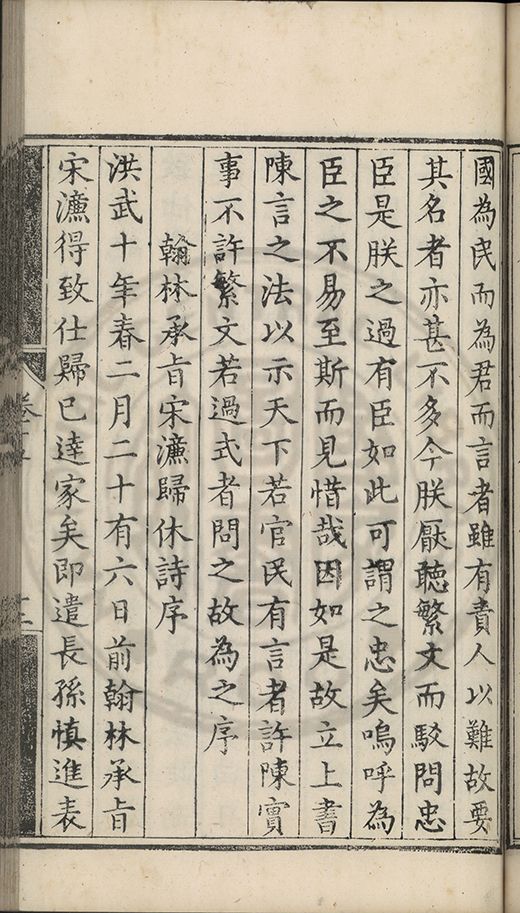 國為民而為君而言者雖有責人以難故要
其名者亦甚不多今朕厭聽繁文而駁問忠
臣是朕之過有臣如此可謂之忠矣嗚呼為
臣之不易至斯而見惜哉因如是故立上書
陳言之法以示天下若官民有言者許陳實
事不許繁文若過式者問之故為之序
翰林承旨宋濂歸休詩序
洪武十年春二月二十有六日前翰林承旨
宋濂得致仕歸已達家矣即遣長孫慎進表
卷十五